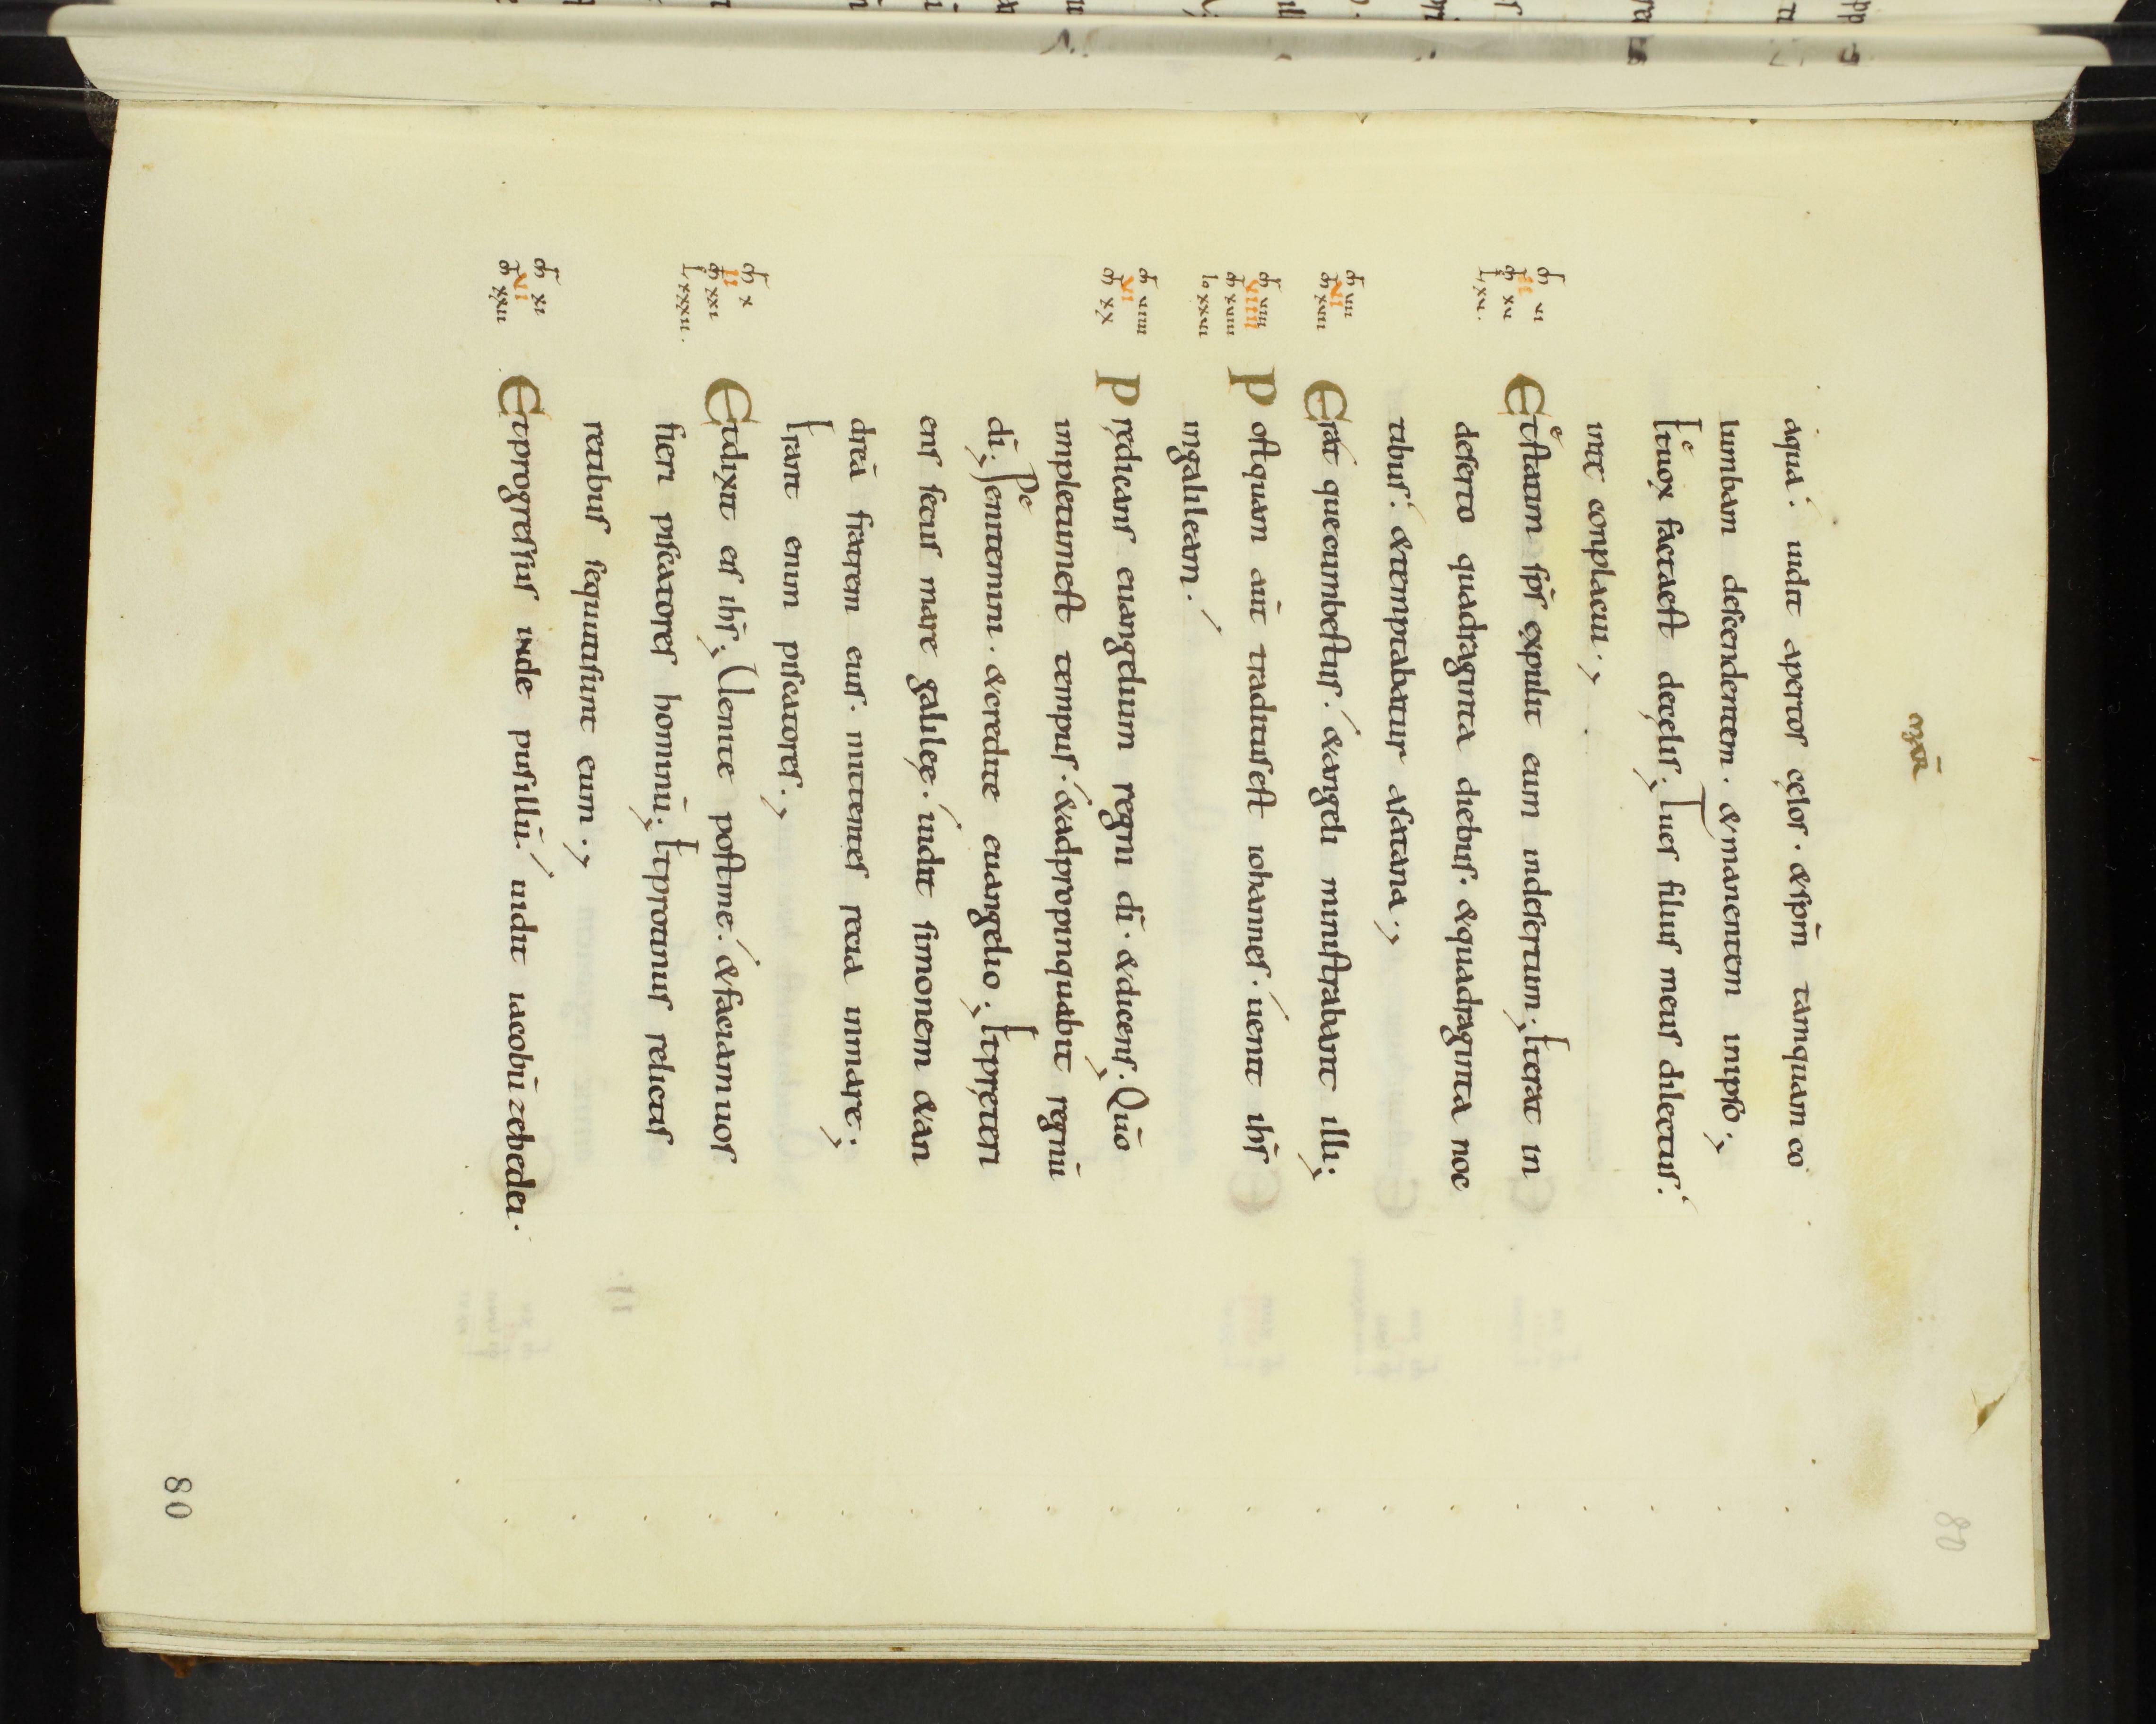 MAR̄
80
aqua. uidit apertos cęlos. &spm̄ tamquam co
lumbam descendentem. &manentem inipso;
Etuox factaest decęlis; Tues filius meus dilectus.
inte conplacui;
mṫ ui
II
mr̄ xu
L xu.
Etstatim sps̄ expulit eum indesertum; Eterat in
deserto quadraginta diebus. &quadraginta noc
tibus. &temptabatur asatana;
mr̄ uii
VI
mt̄ xuii
Erat quecumbestiis. &angeli ministrabant illi;
mr̄ uiii
VIIII
mt̄ xuiii
Io xxui
Postquam aut̄ traditusest iohannes. uenit ihs̄
ingalileam.
mr̄ uiiii
VI
mt̄ xx
Predicans euangelium regni dī. &dicens. Qūo
impletumest tempus. &adpropinquabit regnū
dī; Penitemini. &credite euangelio; Etpręteri
ens secus mare galilęę. uidit simonem &an
dreā fratrem eius. mittentes recia inmare;
Erant enim piscatores;
mr̄ x
II
mt̄ xxi
L xxxii.
Etdixit eis ihs̄; Uenite postme. &faciamuos
fieri piscatores hominū; Etprotinus relictis
retibus sequutisunt eum;
mr̄ xi
VI
mt̄ xxii
Etprogressus inde pusillū. uidit iacobū zebedei.
80